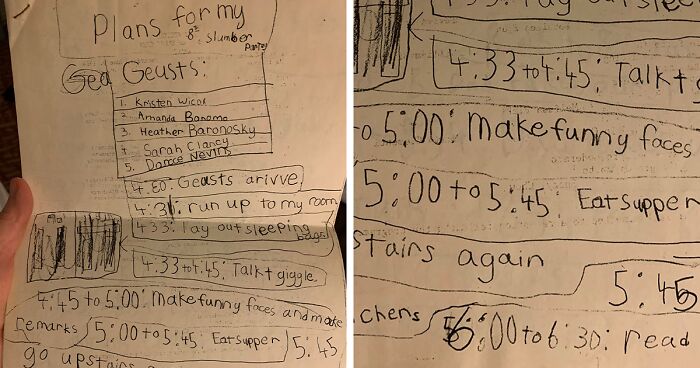 Plans for my
8th slumber
party
Gea Geusts:
1. Kristen
2. Amanda Banoma
3. Heather Baronosky
4. Sarah Clancy
5. Nevins
Geasts arivve
4:31: run up to my room
4:33: lay out sleeping
bags
4:33 to 4:45: Talk + giggle.
4:45 to 5:00: Make funny faces and make
remarks
5:00 to 5:45: Eat supper
5:45
go upstairs
4:33 to 4:45: Talk +
o 5:00: Make funny faces
5:00 to 5:45: Eat supper
stairs again
5:45
chens
6:00 to 6:30: read